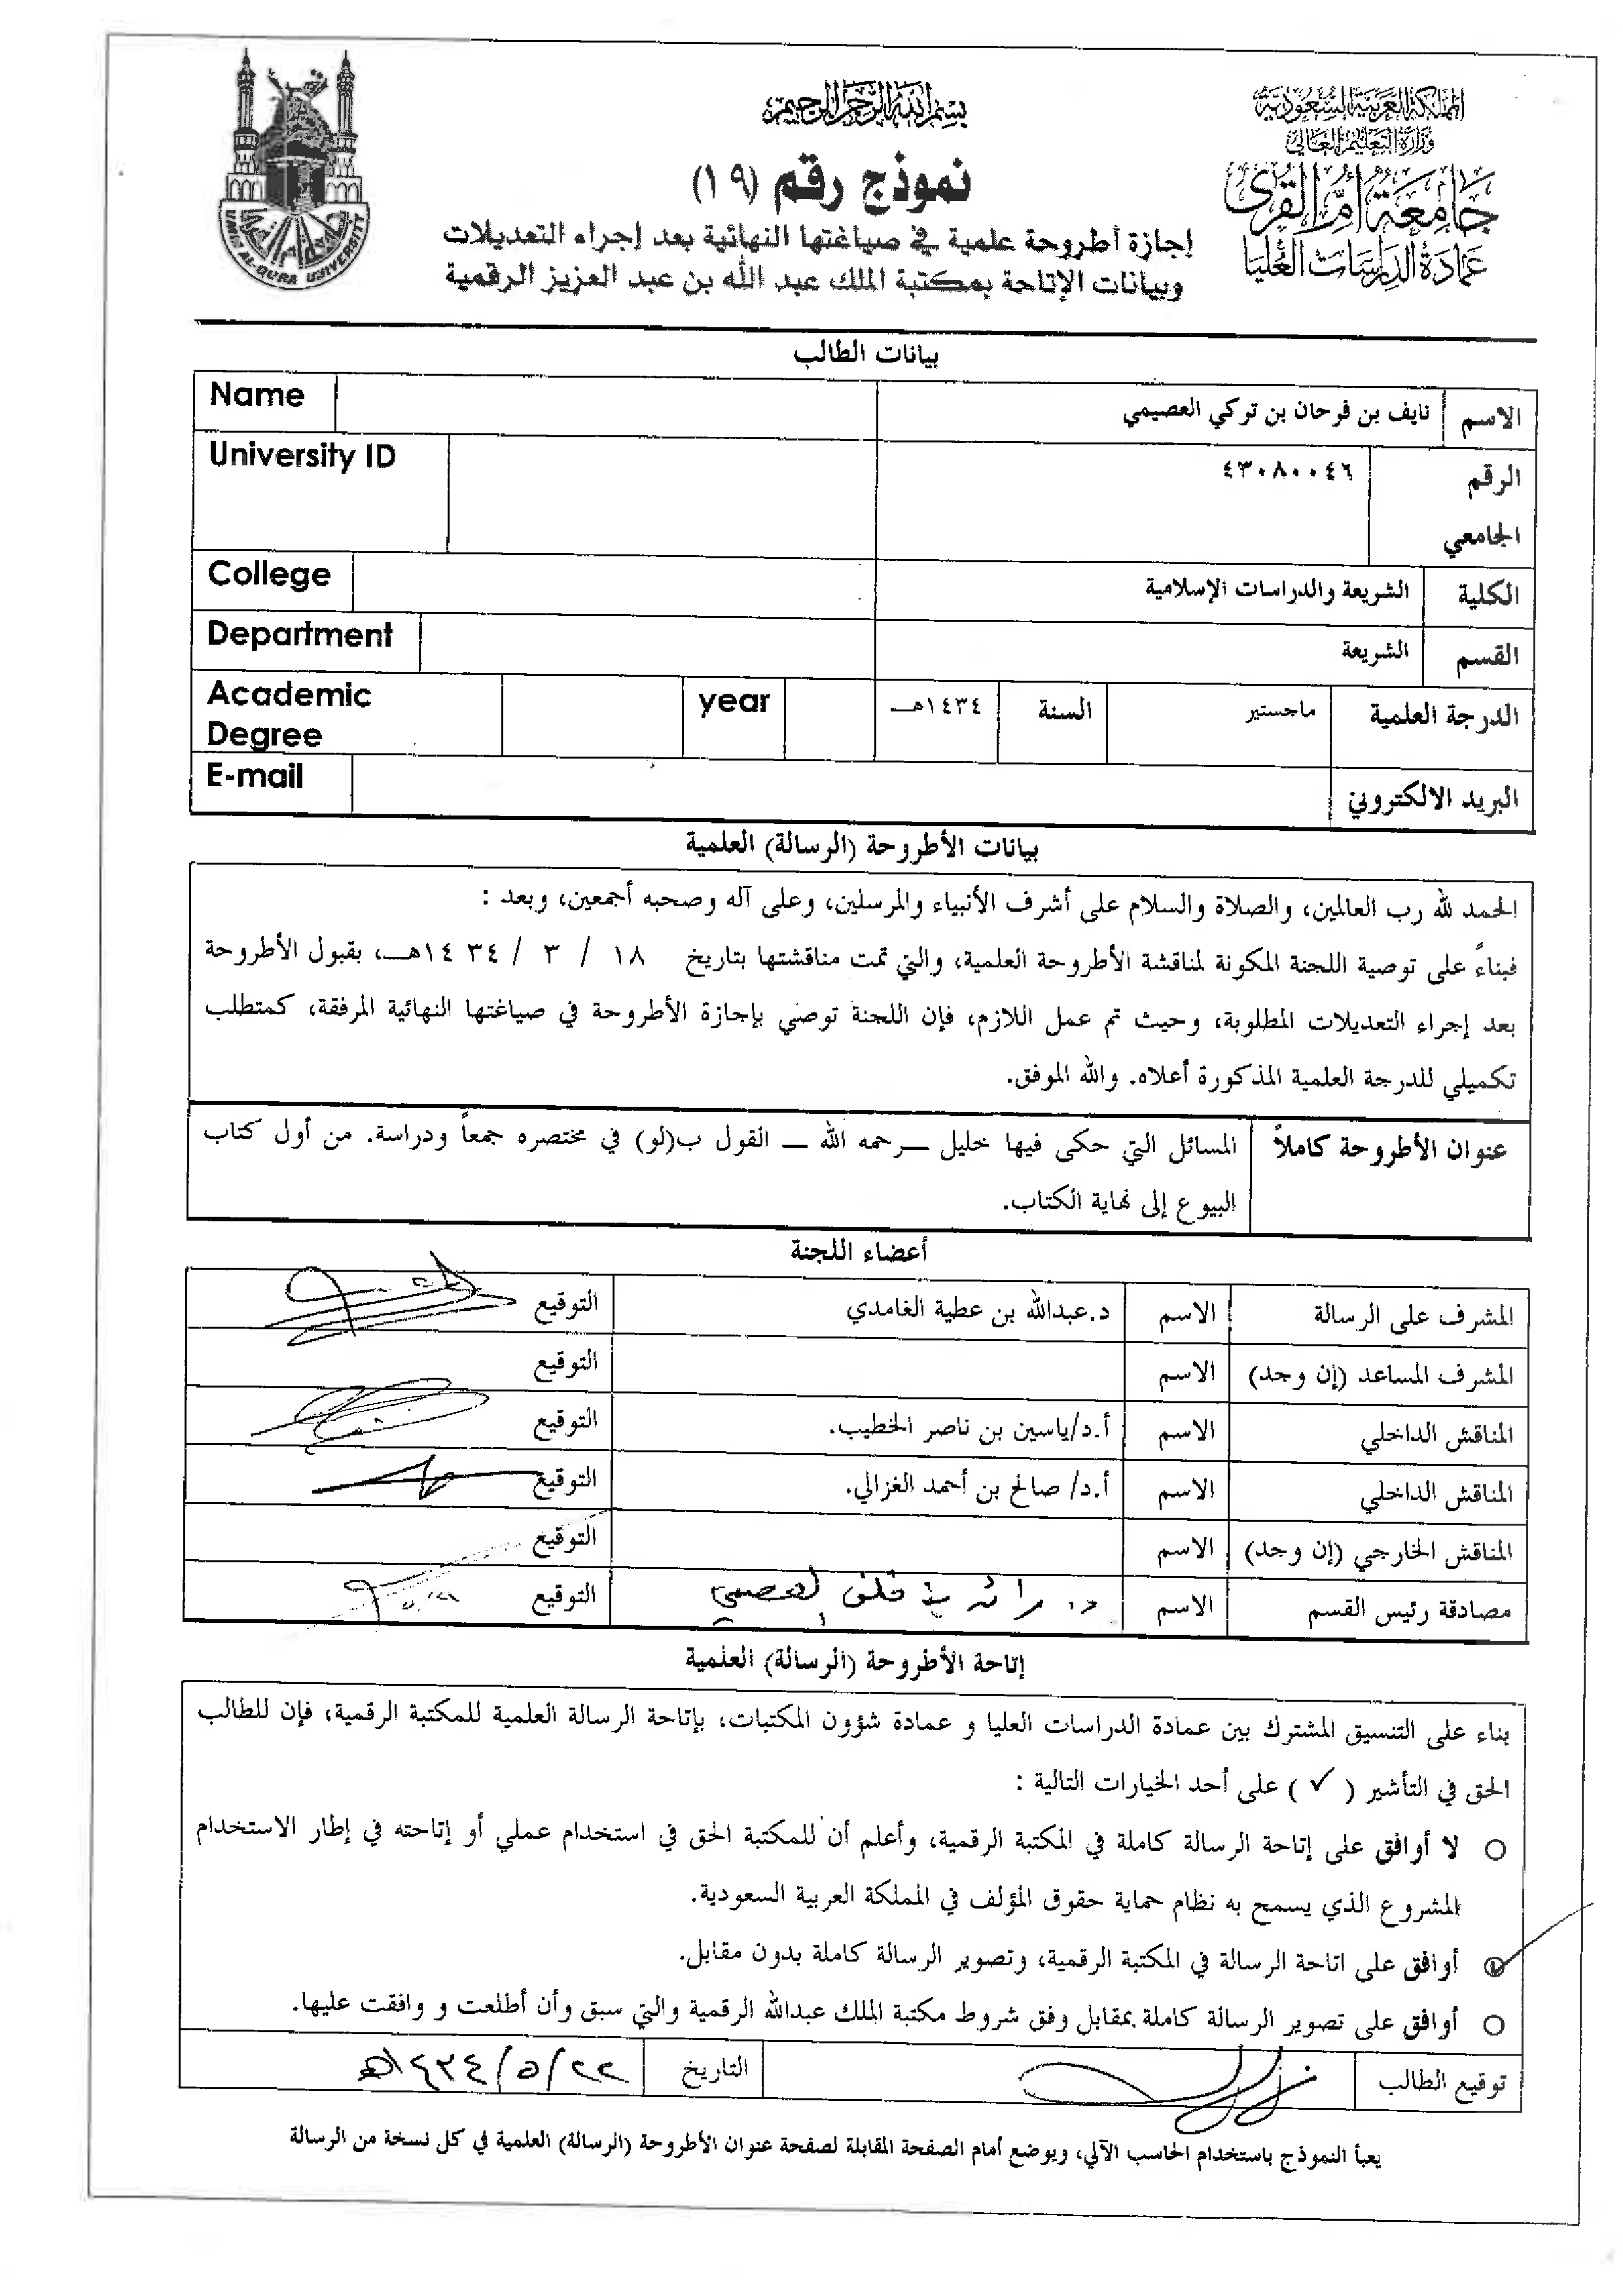 المملكة العربية السعودية
وزارة التعليم العالي
جامعة أم القرى
عمادة الدراسات العليا
بسم الله الرحمن الرحيم
نموذج رقم (١٩)
إجازة أطروحة علمية في صياغتها النهائية بعد إجراء التعديلات
وبيانات الإتاحة بمكتبة الملك عبد الله بن عبد العزيز الرقمية
UMM AL-QURA UNIVERSITY
بيانات الطالب
الاسم نايف بن فرحان بن تركي العصيمي Name
الرقم الجامعي ٤٣٠٨٠٠٤٦ University ID
الكلية الشريعة والدراسات الإسلامية College
القسم الشريعة Department
الدرجة العلمية ماجستير السنة ١٤٣٤هـ year Academic Degree
البريد الالكتروني E-mail
بيانات الأطروحة (الرسالة) العلمية
الحمد لله رب العالمين، والصلاة والسلام على أشرف الأنبياء والمرسلين، وعلى آله وصحبه أجمعين، وبعد :
فبناءً على توصية اللجنة المكونة لمناقشة الأطروحة العلمية، والتي تمت مناقشتها بتاريخ ١٨ / ٣ / ١٤٣٤هـ، بقبول الأطروحة
بعد إجراء التعديلات المطلوبة، وحيث تم عمل اللازم، فإن اللجنة توصي بإجازة الأطروحة في صياغتها النهائية المرفقة، كمتطلب
تكميلي للدرجة العلمية المذكورة أعلاه. والله الموفق.
عنوان الأطروحة كاملاً المسائل التي حكى فيها خليل ــرحمه الله ــ القول ب(لو) في مختصره جمعاً ودراسة. من أول كتاب
البيوع إلى نهاية الكتاب.
أعضاء اللجنة
المشرف على الرسالة الاسم د.عبدالله بن عطية الغامدي التوقيع
المشرف المساعد (إن وجد) الاسم التوقيع
المناقش الداخلي الاسم أ.د/ياسين بن ناصر الخطيب. التوقيع
المناقش الداخلي الاسم أ.د/ صالح بن أحمد الغزالي. التوقيع
المناقش الخارجي (إن وجد) الاسم التوقيع
مصادقة رئيس القسم الاسم د. العصيمي التوقيع
إتاحة الأطروحة (الرسالة) العلمية
بناء على التنسيق المشترك بين عمادة الدراسات العليا و عمادة شؤون المكتبات، بإتاحة الرسالة العلمية للمكتبة الرقمية، فإن للطالب
الحق في التأشير ( ✓ ) على أحد الخيارات التالية :
لا أوافق على إتاحة الرسالة كاملة في المكتبة الرقمية، وأعلم أن للمكتبة الحق في استخدام عملي أو إتاحته في إطار الاستخدام
المشروع الذي يسمح به نظام حماية حقوق المؤلف في المملكة العربية السعودية.
أوافق على اتاحة الرسالة في المكتبة الرقمية، وتصوير الرسالة كاملة بدون مقابل.
أوافق على تصوير الرسالة كاملة بمقابل وفق شروط مكتبة الملك عبدالله الرقمية والتي سبق وأن أطلعت و وافقت عليها.
توقيع الطالب التاريخ ٢٢/٥/١٤٣٤هـ
يعبأ النموذج باستخدام الحاسب الآلي، ويوضع أمام الصفحة المقابلة لصفحة عنوان الأطروحة (الرسالة) العلمية في كل نسخة من الرسالة